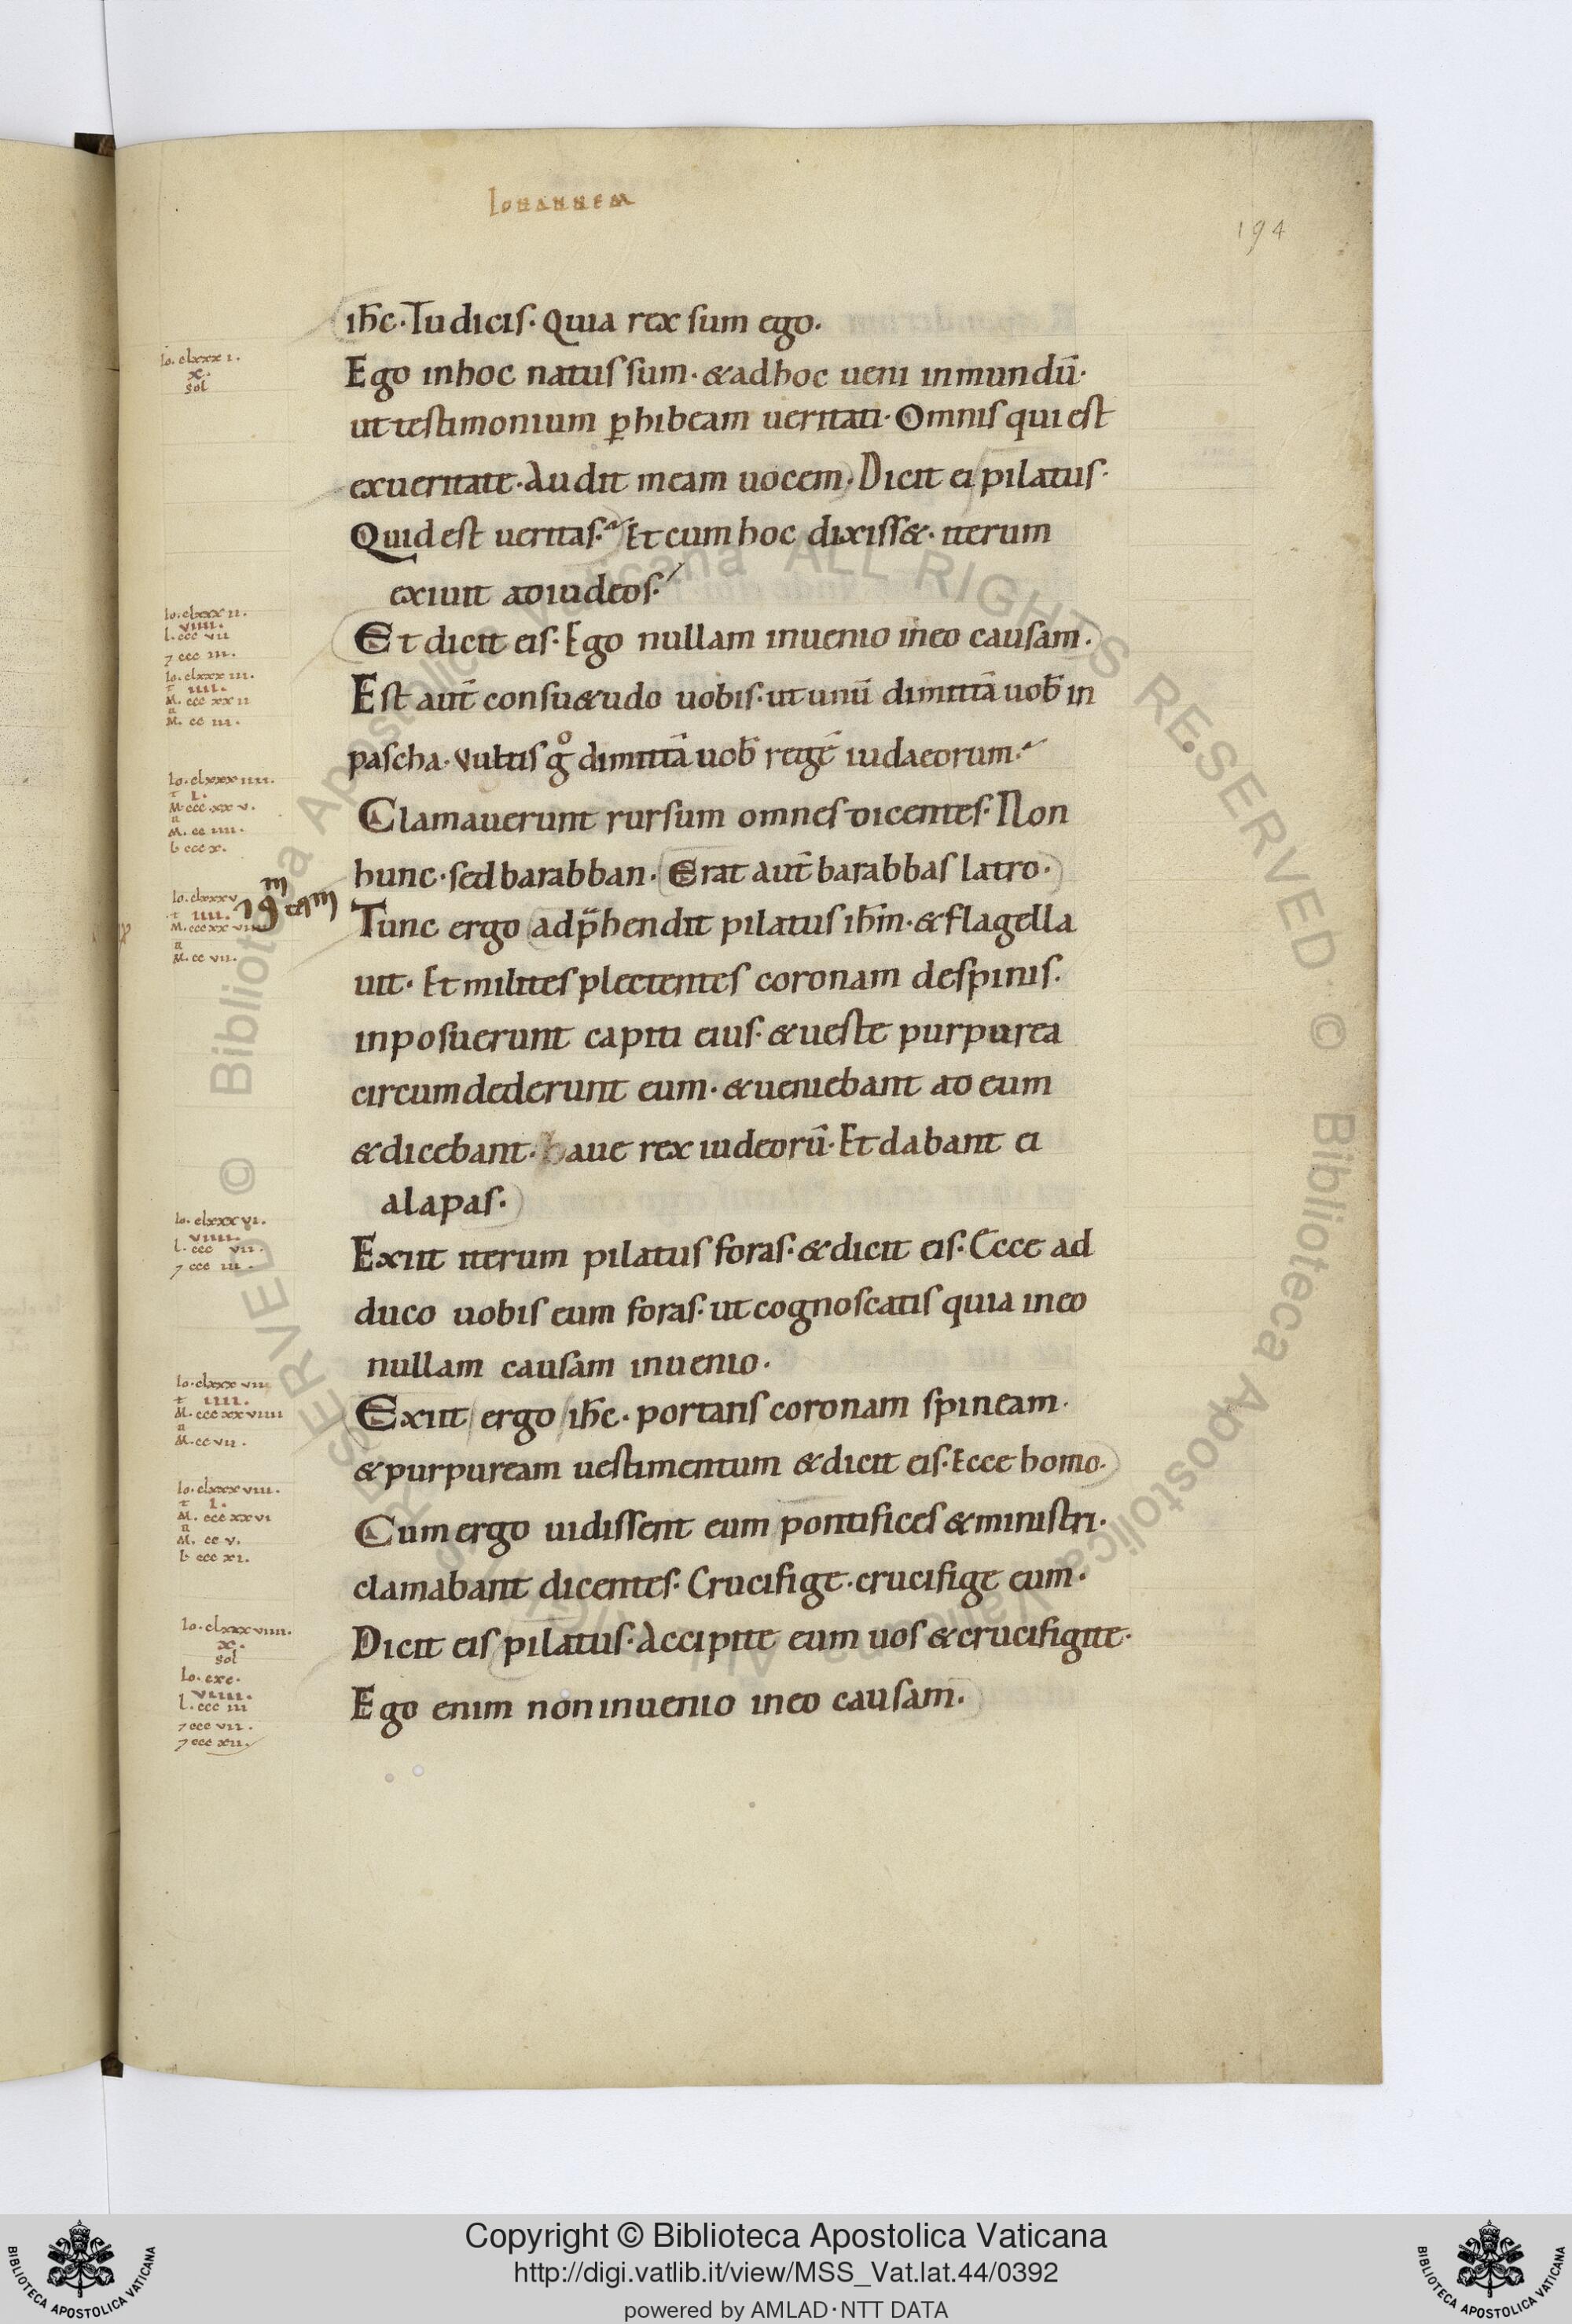 Iohannem
194
ih̄c· Tu dicis· Quia rex sum ego·
Io. clxxx i.
x.
sol
Ego inhoc natus sum· & adhoc ueni inmundū·
ut testimonium ꝑhibeam ueritati· Omnis qui est
exueritate· Audit meam uocem· Dicit ei pilatus·
Quid est ueritas? Et cum hoc dixiss&· iterum
exiuit adiudeos·
Io. clxxx ii.
viiii.
l. ccc vii
⁊ ccc iii.
Et dicit eis· Ego nullam inuenio ineo causam·
Io. clxxx iii.
t iiii.
M. ccc xx ii
n
M. cc iii.
Est aut̄ consu&udo uobis· ut unū dimittā uob̄ in
pascha· Vultis gͦ dimittā uob̄ regē iudaeorum?
Io. clxxx iiii.
t i.
M ccc xx v.
n
M. cc iiii.
L ccc x.
Clamauerunt rursum omnes dicentes· Non
hunc· sed barabban· Erat aut̄ barabbas latro·
Io. clxxx v
t iiii.
M. ccc xx vii
n
M. cc vii.
Tunc ergo adp̄hendit pilatus ih̄m· & flagella
uit· Et milites plectentes coronam despinis·
inposuerunt capiti eius· & ueste purpurea
circumdederunt eum· & ueniebant ad eum
& dicebant· haue rex iudeorū· Et dabant ei
alapas·
Io. clxxx vi.
viiii.
l. ccc vii.
⁊ ccc iii.
Exiit iterum pilatus foras· & dicit eis· Ecce ad
duco uobis eum foras· ut cognoscatis quia ineo
nullam causam inuenio·
Io. clxxx vii
t iiii.
M. ccc xx viiii
n
M. cc vii.
Exiit ergo ih̄c· portans coronam spineam·
& purpuream uestimentum & dicit eis· Ecce homo·
Io. clxxx viii.
t i.
M. ccc xx vi
n
M. cc v.
L ccc xi.
Cum ergo uidissent eum pontifices & ministri·
clamabant dicentes· Crucifige· crucifige eum·
Io. clxxx viiii.
x.
sol
Dicit eis pilatus· Accipite eum uos & crucifigite·
Io. cxc.
viiii.
l. ccc iii
⁊ ccc vii.
⁊ ccc xii.
Ego enim non inuenio ineo causam·
Copyright © Biblioteca Apostolica Vaticana
http://digi.vatlib.it/view/MSS_Vat.lat.44/0392
powered by AMLAD·NTT DATA
BIBLIOTECA APOSTOLICA VATICANA
BIBLIOTECA APOSTOLICA VATICANA